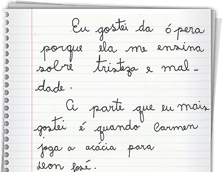 Eu gostei da ópera
porque ela me ensina
sobre tristeza e mal-
dade.
A parte que eu mais
gostei é quando Carmen
joga a acácia para
Deon José.